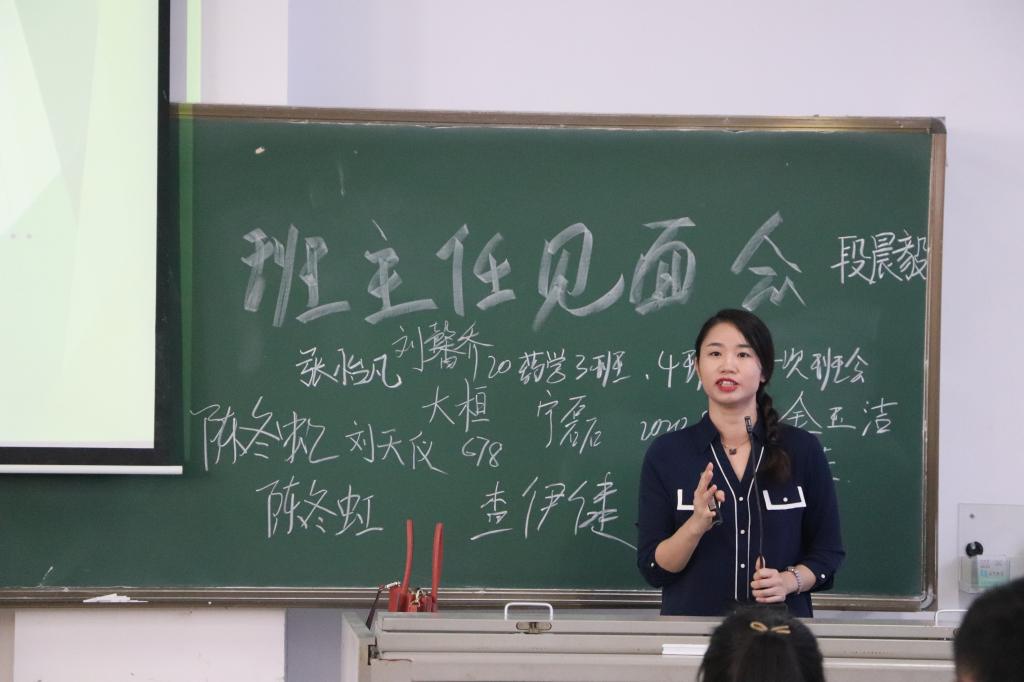 班主任见面会
段晨毅
刘馨乔
张怡凡
20药学3班、4班 一次班会
大桓
宁磊
金玉洁
陈冬虹
刘天仪
678
陈冬虹
查伊健